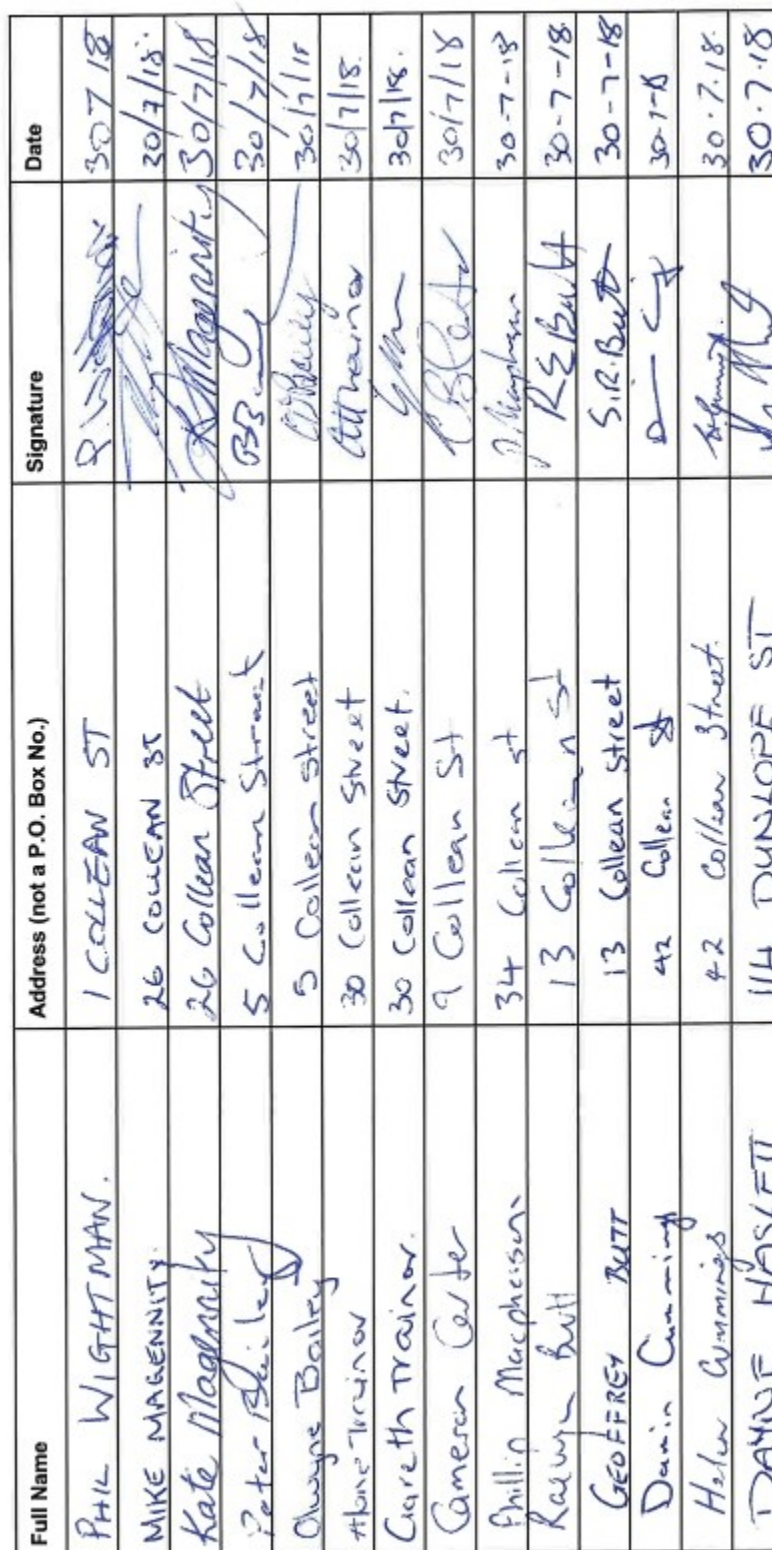 Full Name Address (not a P.O. Box No.) Signature Date
PHIL WIGHTMAN. 1 COLLEAN ST 30 7 18
MIKE MAGENNITY. 26 COLLEAN ST 30/7/18.
Kate Magennity 26 Collean Street Magennity 30/7/18
Peter Bailey 5 Collean Street 30/7/18
Olwyne Bailey 5 Collean Street 30/7/18
Trainor 30 Collean Street 30/7/18.
Gareth Trainor. 30 Collean Street. 30/7/18.
Cameron Carter 9 Collean St 30/7/18
Phillip Macpherson 34 Collean st 30-7-18
Raewyn Butt 13 Collean St R E Butt 30-7-18.
GEOFFREY BUTT 13 Collean Street S.R.Butt 30-7-18
Damin Cummings 42 Collean St 30-7-18
Helen Cummings 42 Collean Street. 30.7.18.
DAYNE HASLETT 114 DUNLOPE ST 30.7.18